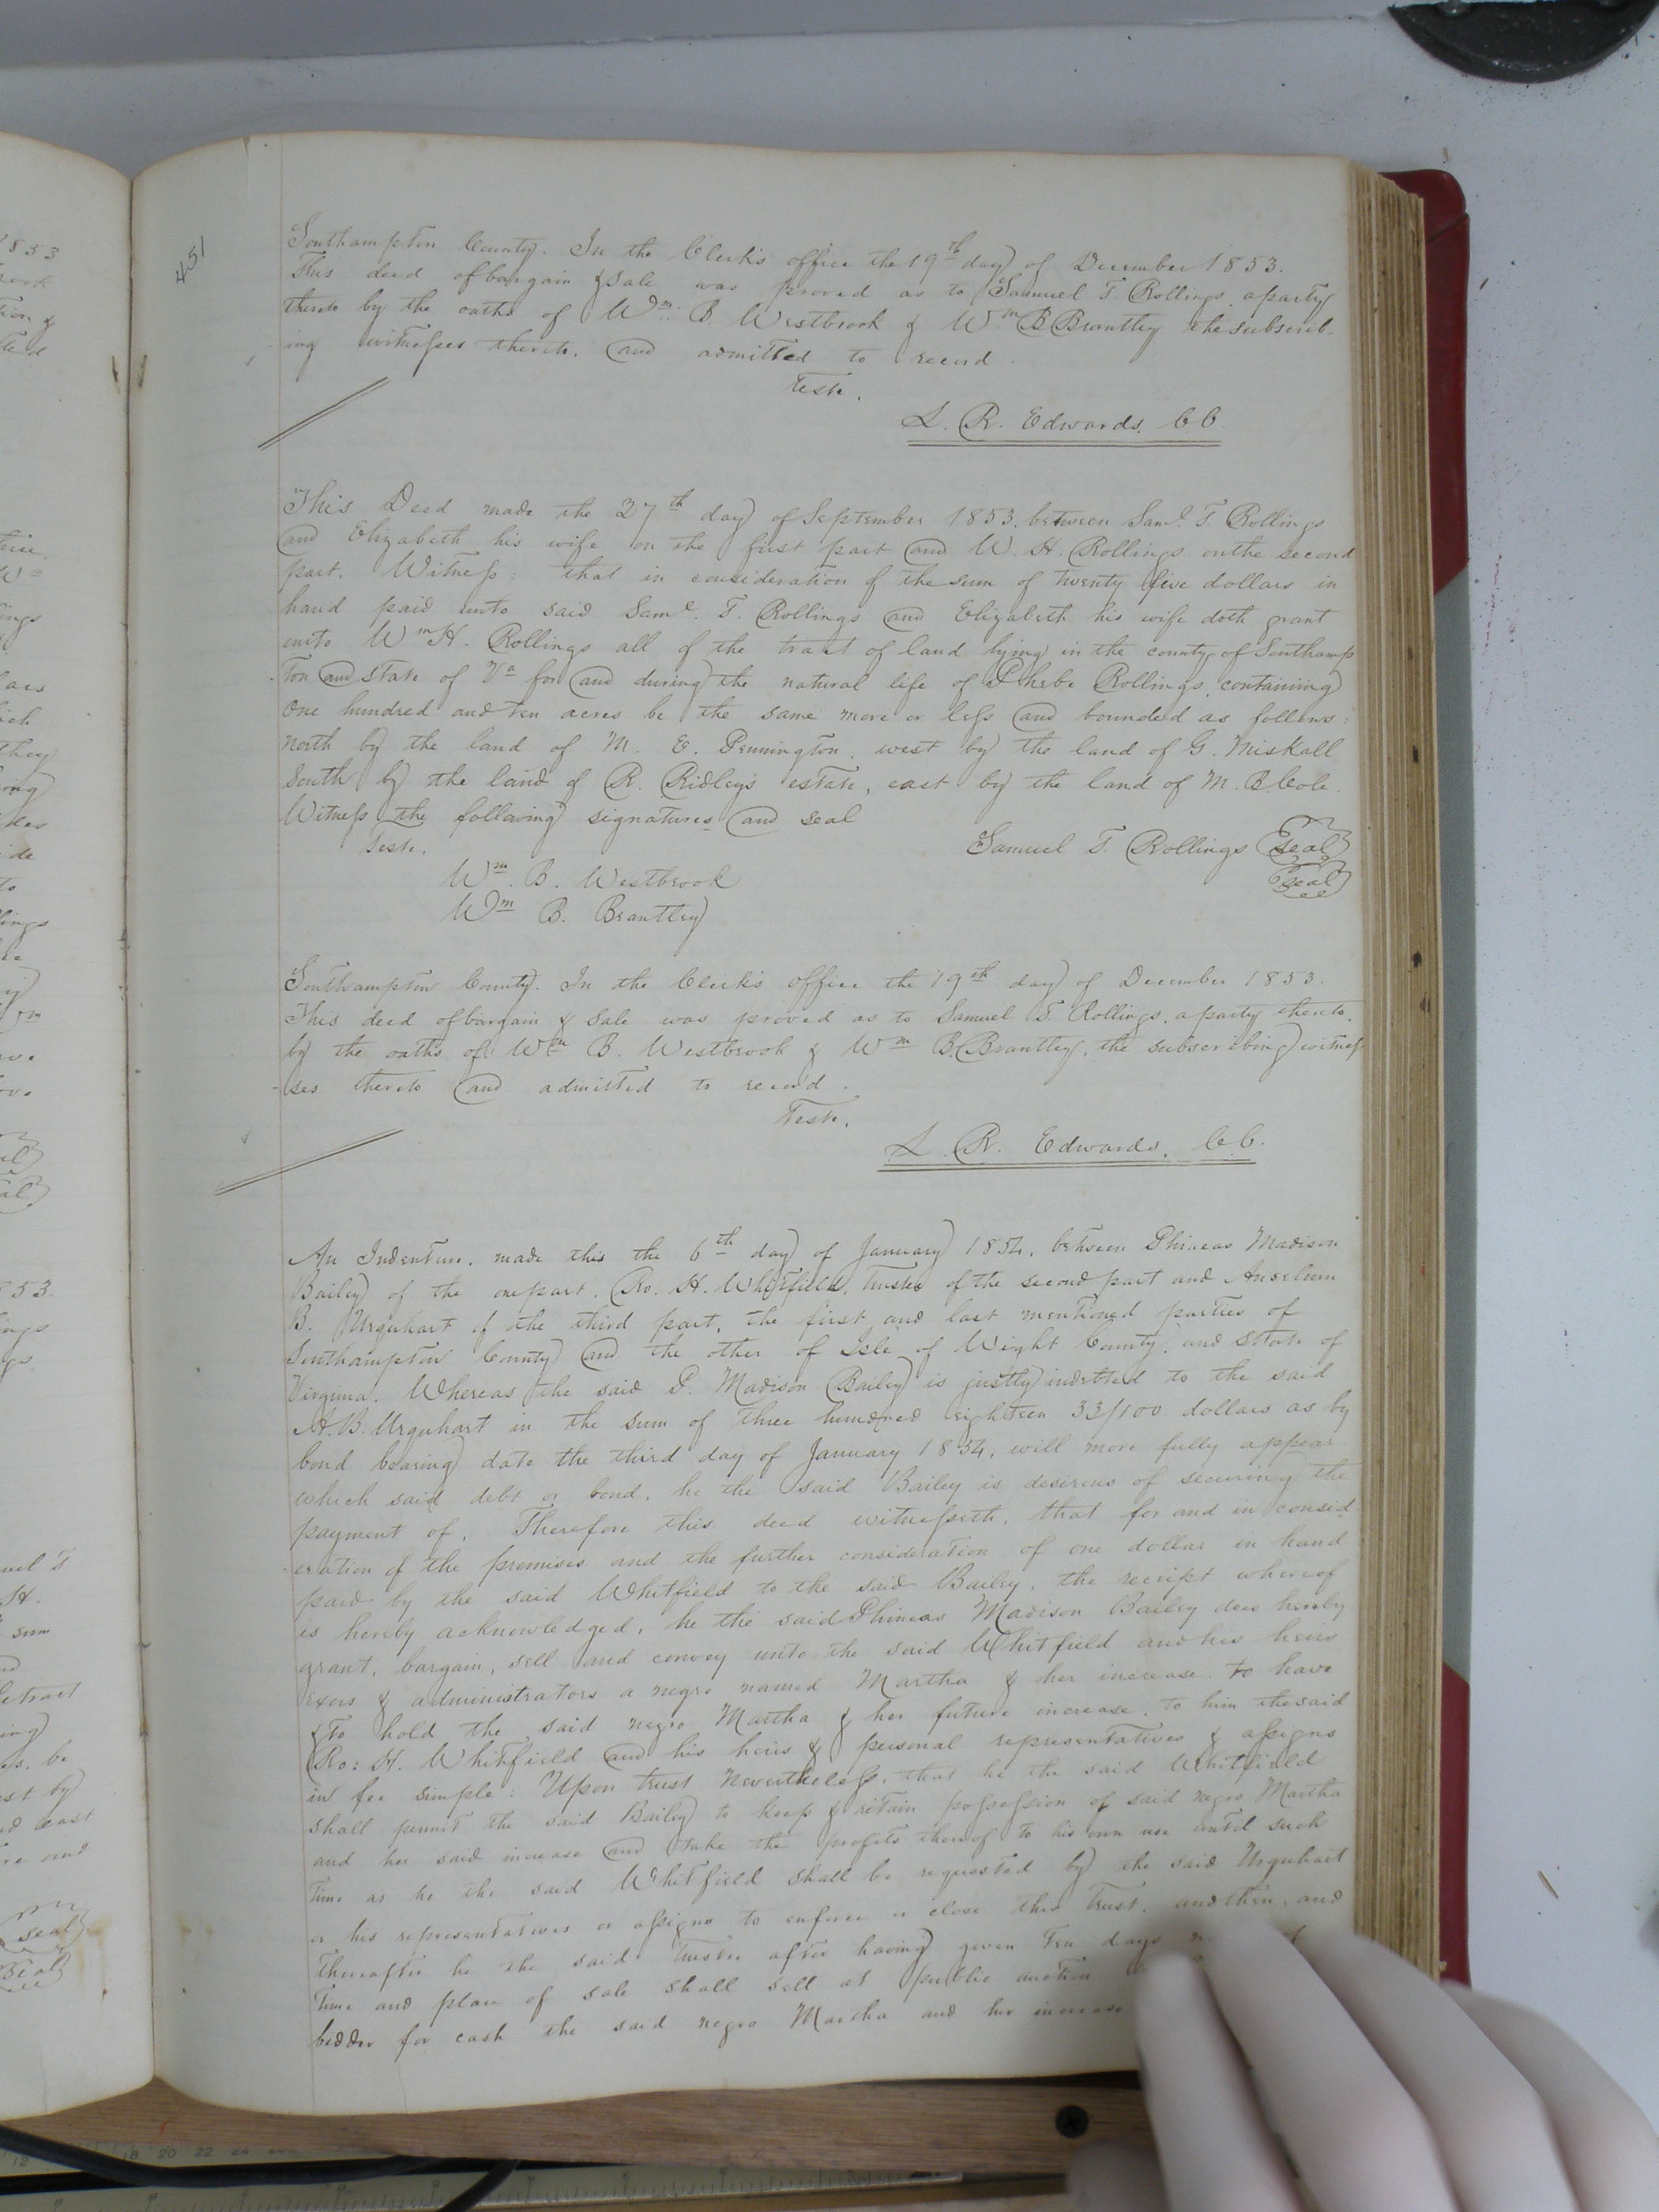 451
Southampton County. In the Clerk's office the 19th day of December 1853.
This deed of bargain & sale was proved as to Samuel T. Rollings, a party
thereto by the oaths of Wm. B. Westbrook & Wm B Brantley the subscrib-
ing witnesses thereto, and admitted to record.
Teste,
L. R. Edwards. CC.
This Deed made the 27th day of September 1853. between Saml. T. Rollings
and Elizabeth his wife on the first part and W. H. Rollings on the second
part. Witness: that in consideration of the sum of twenty five dollars in
hand paid unto said Saml. T. Rollings and Elizabeth his wife doth grant
unto Wm H. Rollings all of the tract of land lying in the county of Southamp
ton and state of Va for and during the natural life of Phebe Rollings, containing
one hundred and ten acres be the same more or less and bounded as follows:
north by the land of M. E. Pennington. west by the land of G. Miskall
South by the land of R. Ridley's estate, east by the land of M. B. Cole.
Witness the following signatures and seal
Teste.
Samuel T. Rollings seal
Wm. B. Westbrook
seal
Wm B. Brantley
Southampton County. In the Clerk's office the 19th day of December 1853.
This deed of bargain & sale was proved as to Samuel T. Rollings, a party thereto,
by the oaths of Wm B. Westbrook & Wm B. Brantley, the subscribing witnes-
ses thereto and admitted to record.
Teste,
L. R. Edwards, CC.
An Indenture, made this the 6th day of January 1854, between Phineas Madison
Bailey of the one part, Ro. H. Whitfield, trustee of the second part and Anselum
B. Urquhart of the third part, the first and last mentioned parties of
Southampton County and the other of Isle of Wight County, and State of
Virginia. Whereas the said P. Madison Bailey is justly indebted to the said
A. B. Urquhart in the sum of three hundred eighteen 33/100 dollars as by
bond bearing date the third day of January 1854, will more fully appear
which said debt or bond, he the said Bailey is desirous of securing the
payment of. Therefore this deed witnesseth, that for and in consid-
eration of the premises and the further consideration of one dollar in hand
paid by the said Whitfield to the said Bailey, the receipt whereof
is hereby acknowledged, he the said Phineas Madison Bailey does hereby
grant, bargain, sell and convey unto the said Whitfield and his heirs
exors & administrators a negro named Martha & her increase. to have
& to hold the said negro Martha & her future increase, to him the said
Ro: H. Whitfield and his heirs & personal representatives & assigns
in fee simple: Upon trust nevertheless, that he the said Whitfield
shall permit the said Bailey to keep & retain possession of said negro Martha
and her said increase and take the profits thereof to his own use until such
time as he the said Whitfield shall be requested by the said Urquhart
or his representatives or assigns to enforce or close this trust, and then, and
thereafter he the said trustee after having given ten days
time and place of sale shall sell at public auction
bidder for cash the said negro Martha and her increase